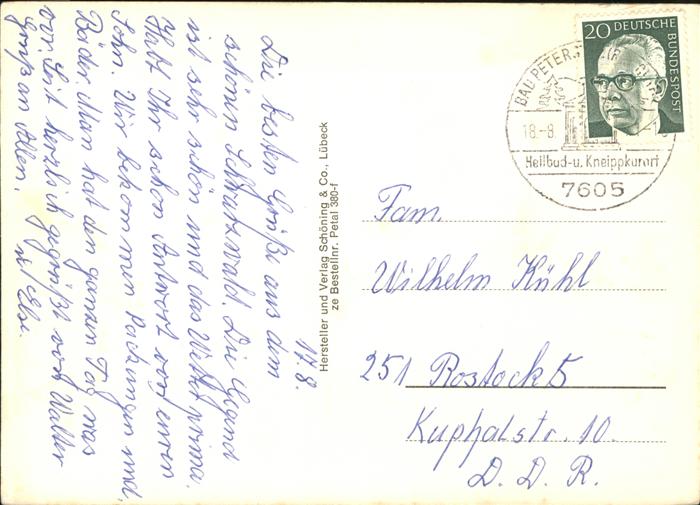 17.8.
Die besten Grüße aus dem
schönen Schwarzwald. Die Gegend
ist sehr schön und das Wetter prima.
Habt Ihr schon Antwort von euren
Sohn. Wir bekommen Packungen und
Bäder. Man hat den ganzen Tag was
vor. Seit herzlich gegrüßt von Walter
u/ Else.
Gruß an Allen.
Hersteller und Verlag Schöning & Co., Lübeck
ze Bestellnr. Petal 380-f
20 DEUTSCHE
BUNDESPOST
BAD PETERS
18.-8.
Heilbad-u. Kneippkurort
7605
Fam.
Wilhelm Kühl
251 Rostock 5
Kuphalstr. 10.
D. D. R.